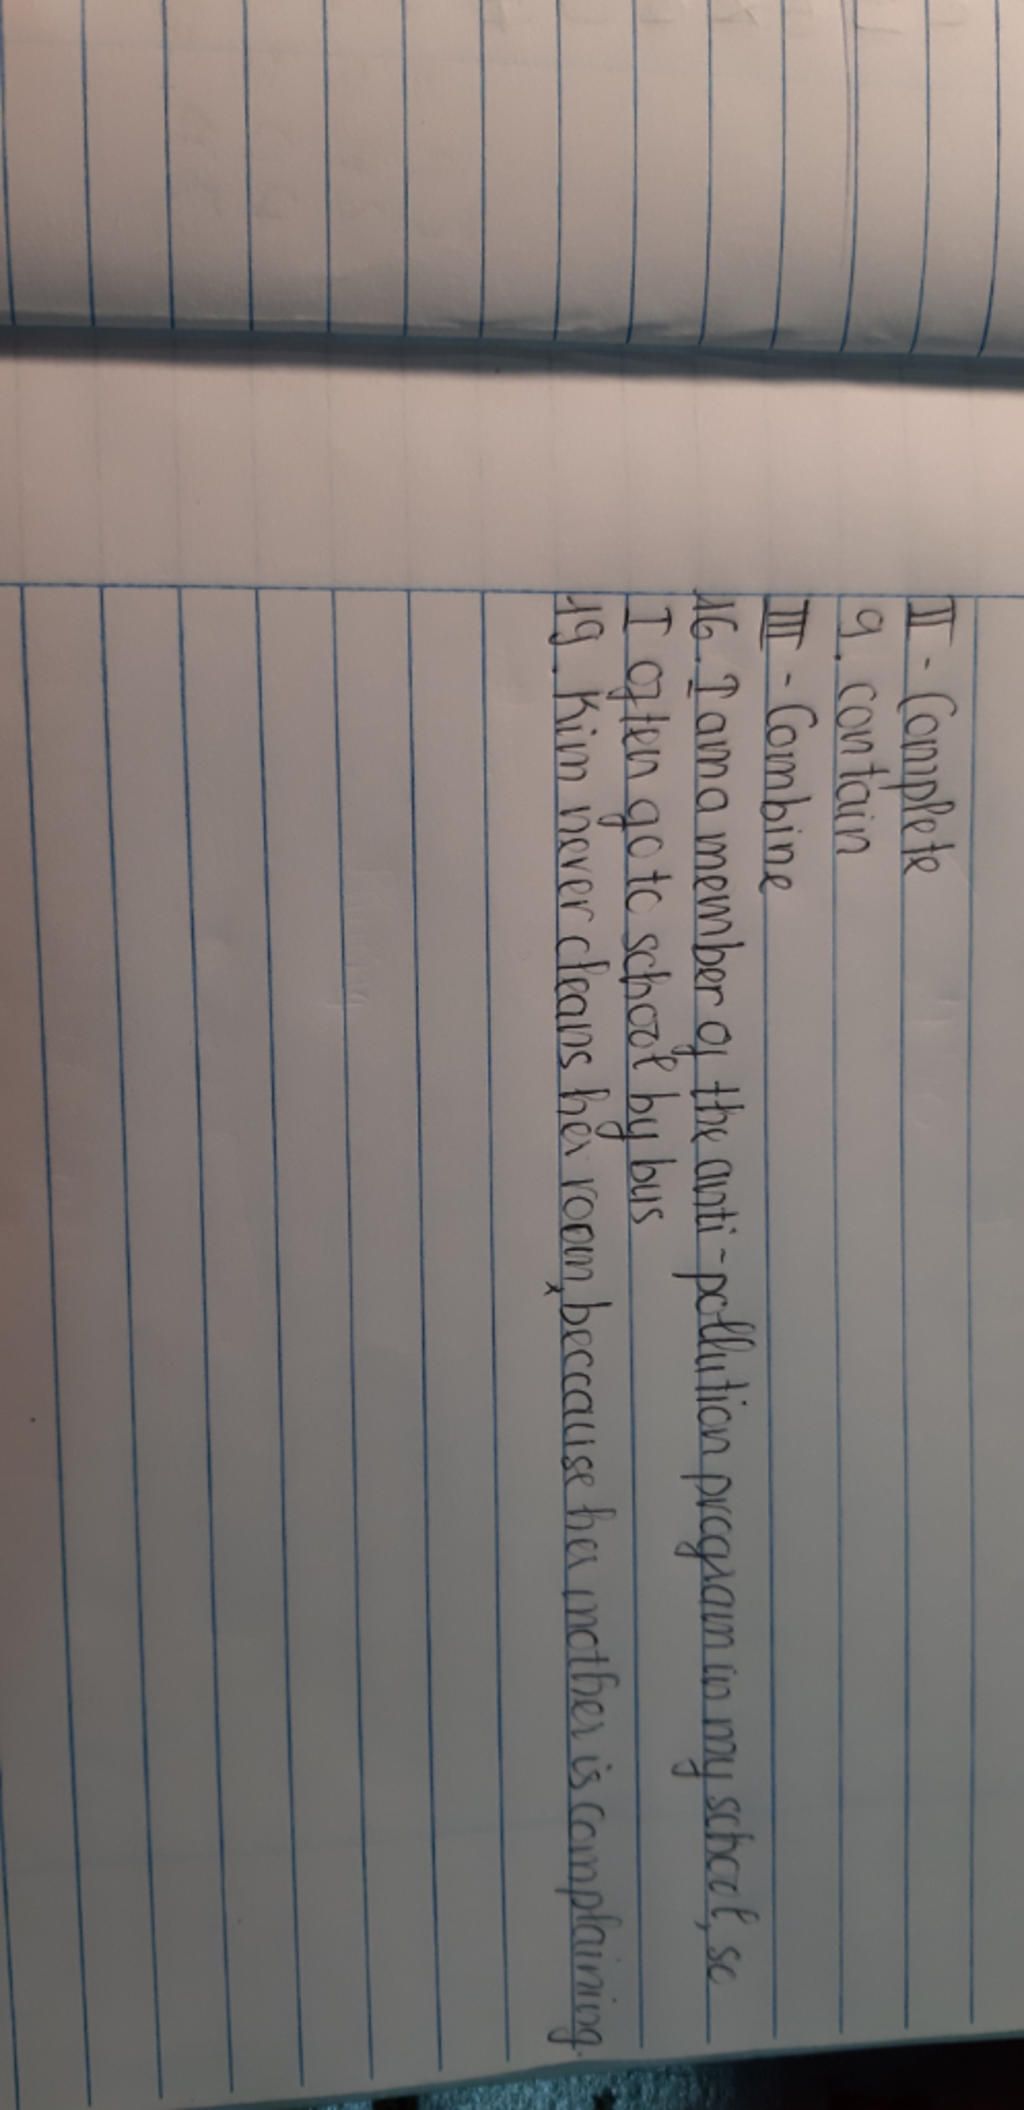 II - Complete
9. contain
III - Combine
16. I am a member of the anti-pollution program in my school, so
I often go to school by bus
19. Kim never cleans her room, beccause her mother is complaining.